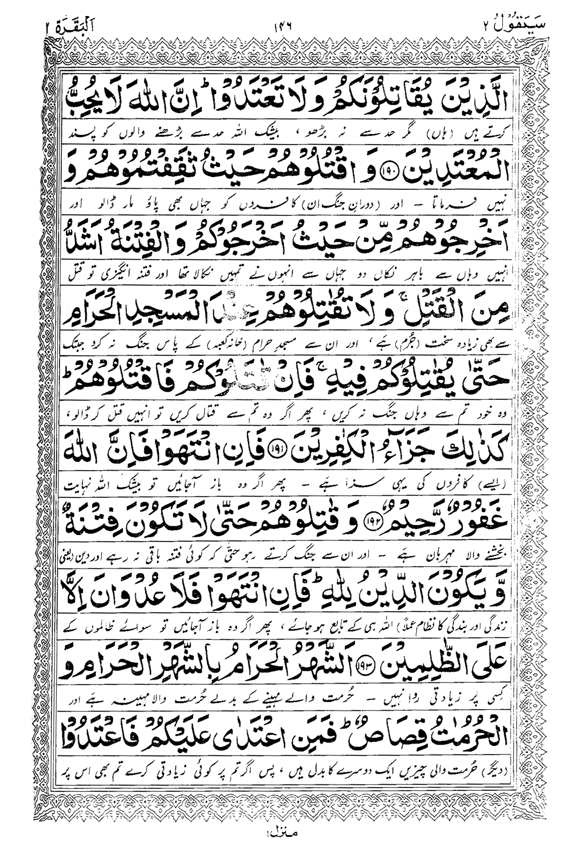 سَيَقُوْلُ ٢ ١٤٦ اَلْبَقَرَة ٢
الَّذِيْنَ يُقَاتِلُوْنَكُمْ وَلَا تَعْتَدُوْا ؕ اِنَّ اللّٰهَ لَا يُحِبُّ
کرتے ہیں (ہاں) مگر حد سے نہ بڑھو ، بیشک اللہ حد سے بڑھنے والوں کو پسند
الْمُعْتَدِيْنَ ﴿١٩٠﴾ وَ اقْتُلُوْهُمْ حَيْثُ ثَقِفْتُمُوْهُمْ وَ
نہیں فرماتا ۔ اور (دورانِ جنگ ان) کافروں کو جہاں بھی پاؤ مار ڈالو اور
اَخْرِجُوْهُمْ مِّنْ حَيْثُ اَخْرَجُوْكُمْ وَ الْفِتْنَةُ اَشَدُّ
انہیں وہاں سے باہر نکال دو جہاں سے انہوں نے تمہیں نکالا تھا اور فتنہ انگیزی تو قتل
مِنَ الْقَتْلِ ۚ وَ لَا تُقٰتِلُوْهُمْ عِنْدَ الْمَسْجِدِ الْحَرَامِ
سے بھی زیادہ سخت (جُرم) ہے ، اور ان سے مسجدِ حرام (خانہ کعبہ) کے پاس جنگ نہ کرو جب تک
حَتّٰى يُقٰتِلُوْكُمْ فِيْهِ ۚ فَاِنْ قٰتَلُوْكُمْ فَاقْتُلُوْهُمْ ؕ
وہ خود تم سے وہاں جنگ نہ کریں ، پھر اگر وہ تم سے قتال کریں تو انہیں قتل کر ڈالو ،
كَذٰلِكَ جَزَآءُ الْكٰفِرِيْنَ ﴿١٩١﴾ فَاِنِ انْتَهَوْا فَاِنَّ اللّٰهَ
(ایسے) کافروں کی یہی سزا ہے ۔ پھر اگر وہ باز آجائیں تو بیشک اللہ نہایت
غَفُوْرٌ رَّحِيْمٌ ﴿١٩٢﴾ وَ قٰتِلُوْهُمْ حَتّٰى لَا تَكُوْنَ فِتْنَةٌ
بخشنے والا مہربان ہے ۔ اور ان سے جنگ کرتے رہو حتٰی کہ کوئی فتنہ باقی نہ رہے اور دین (یعنی
وَّ يَكُوْنَ الدِّيْنُ لِلّٰهِ ؕ فَاِنِ انْتَهَوْا فَلَا عُدْوَانَ اِلَّا
زندگی اور بندگی کا نظام عملاً) اللہ ہی کے تابع ہو جائے ، پھر اگر وہ باز آجائیں تو سوائے ظالموں کے
عَلَى الظّٰلِمِيْنَ ﴿١٩٣﴾ اَلشَّهْرُ الْحَرَامُ بِالشَّهْرِ الْحَرَامِ وَ
کسی پر زیادتی روا نہیں ۔ حُرمت والے مہینے کے بدلے حُرمت والا مہینہ ہے اور
الْحُرُمٰتُ قِصَاصٌ ؕ فَمَنِ اعْتَدٰى عَلَيْكُمْ فَاعْتَدُوْا
(دیگر) حُرمت والی چیزیں ایک دوسرے کا بدل ہیں ، پس اگر تم پر کوئی زیادتی کرے تم بھی اس پر
منزل ١